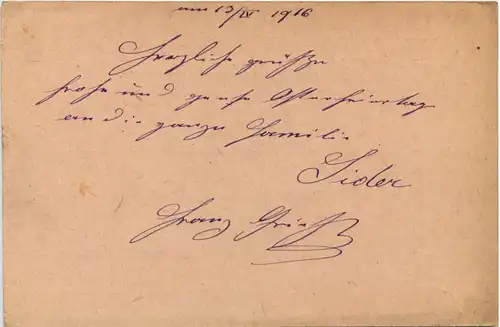 am 13/IV 1916
Herzliche grüße
frohe und gute Osterfeiertag
an die ganze Familie
Sider
Franz